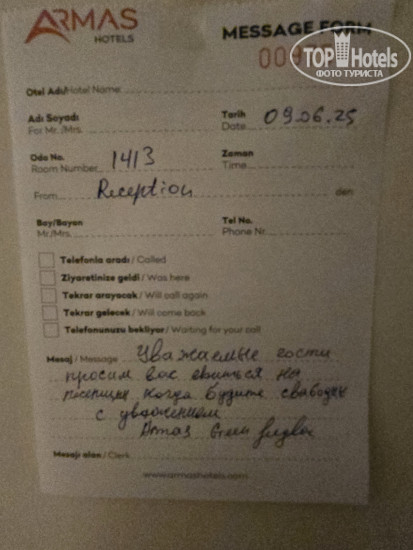 ARMAS
HOTELS
MESSAGE FORM
TOP Hotels
ФОТО ТУРИСТА
Otel Adı/Hotel Name
Adı Soyadı
For Mr./Mrs.
Tarih
Date 09.06.25
Oda No.
Room Number 1413
Zaman
Time
From Reception den
Bay/Bayan
Mr./Mrs.
Tel No.
Phone Nr.
Telefonla aradı / Called
Ziyaretinize geldi / Was here
Tekrar arayacak / Will call again
Tekrar gelecek / Will come back
Telefonunuzu bekliyor / Waiting for your call
Mesaj / Message Уважаемые гости
просим вас явиться на
когда будите свободны
с уважением
Armas Green
Mesajı alan / Clerk
www.armashotels.com